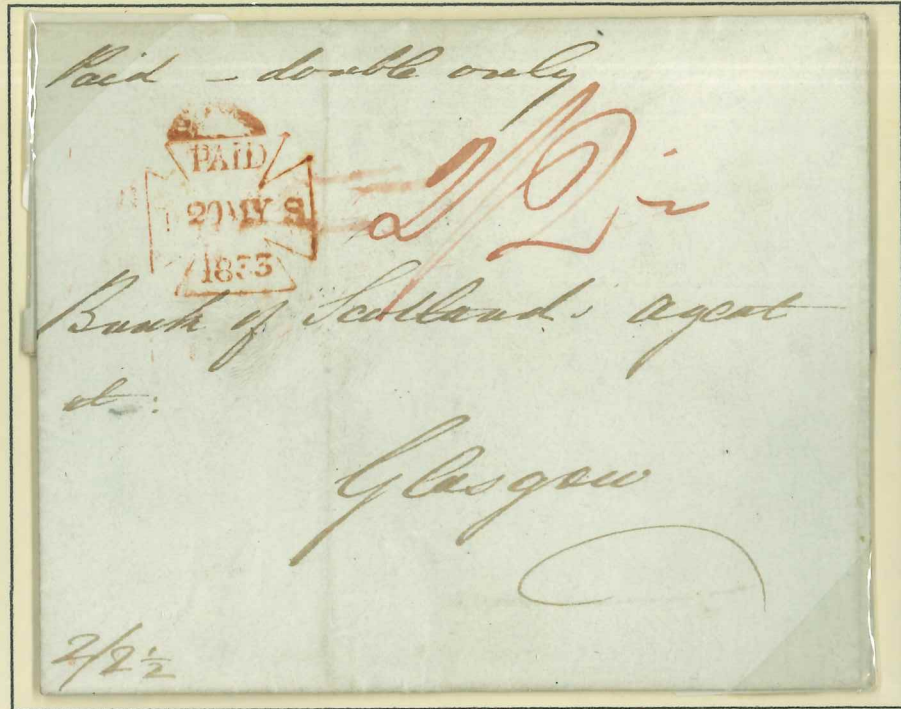 Paid - double only
PAID
20 MY S
1833
2/2½
Bank of Scotlands agent
at
Glasgow
2/2½